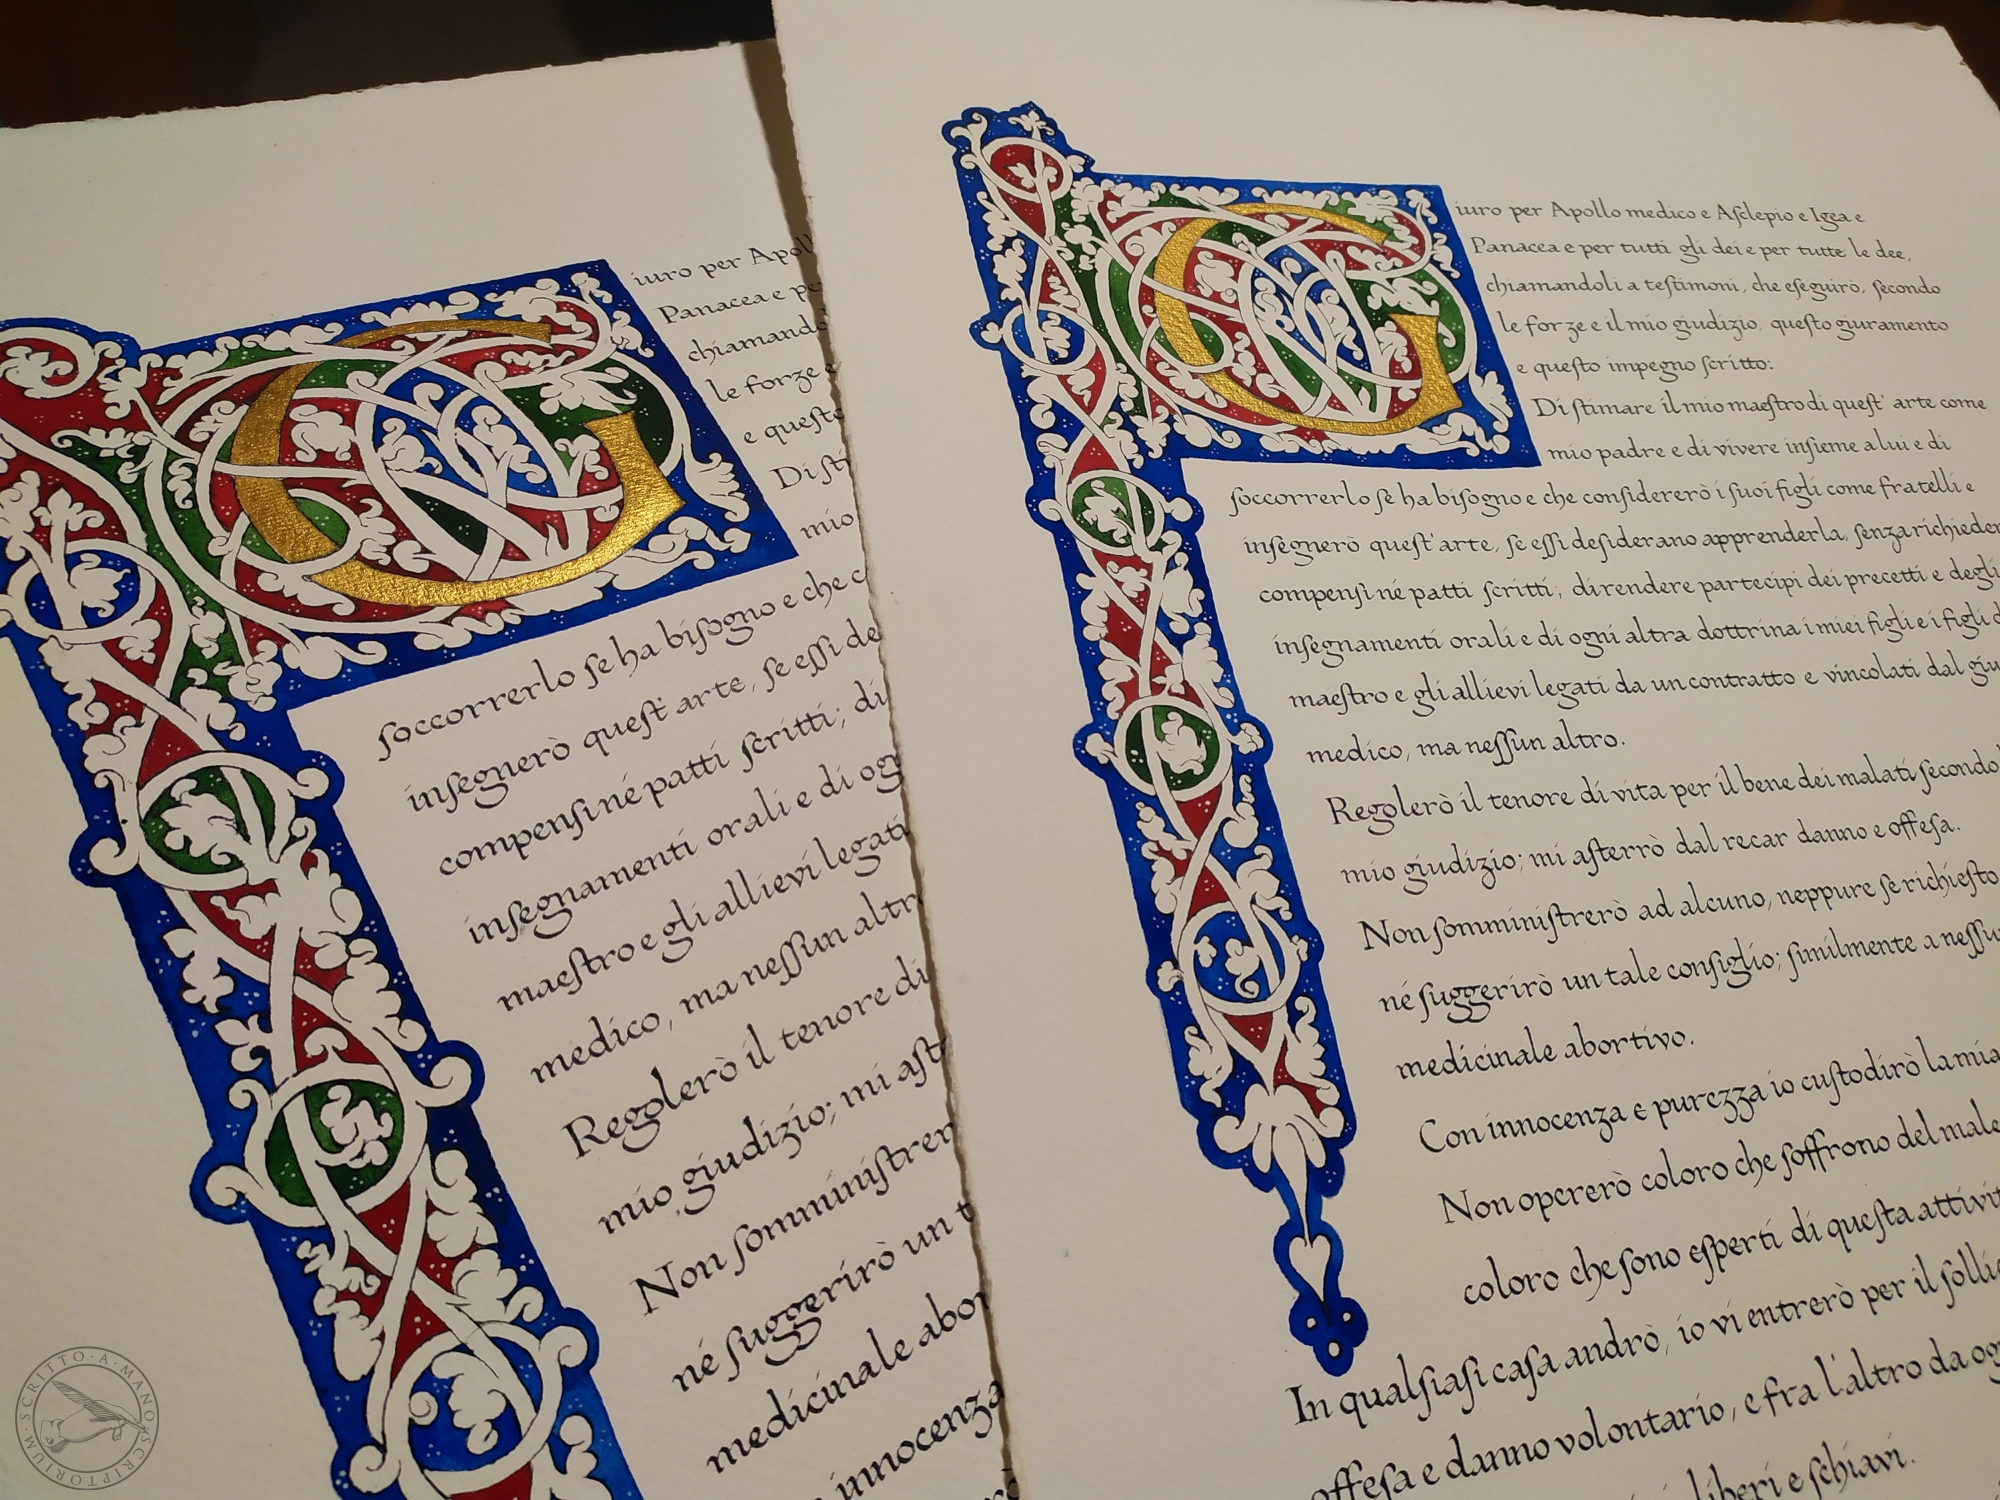 G
iuro per Apol
Panacea e pe
chiamando
le forze e
e queste
Di sti
mio
soccorrerlo se ha bisogno e che c
insegnerò quest'arte, se essi de
compensi né patti scritti; di
insegnamenti orali e di ogn
maestro e gli allievi legati
medico, ma nessun altr
Regolerò il tenore di
mio giudizio; mi ast
Non somministrer
né suggerirò un t
medicinale abor
innocenza
G
iuro per Apollo medico e Asclepio e Igea e
Panacea e per tutti gli dei e per tutte le dee,
chiamandoli a testimoni, che eseguirò, secondo
le forze e il mio giudizio, questo giuramento
e questo impegno scritto:
Di stimare il mio maestro di quest'arte come
mio padre e di vivere insieme a lui e di
soccorrerlo se ha bisogno e che considererò i suoi figli come fratelli e
insegnerò quest'arte, se essi desiderano apprenderla, senza richieder
compensi né patti scritti; di rendere partecipi dei precetti e degli
insegnamenti orali e di ogni altra dottrina i miei figli e i figli d
maestro e gli allievi legati da un contratto e vincolati dal giu
medico, ma nessun altro.
Regolerò il tenore di vita per il bene dei malati secondo
mio giudizio; mi asterrò dal recar danno e offesa.
Non somministrerò ad alcuno, neppure se richiesto
né suggerirò un tale consiglio; similmente a nessu
medicinale abortivo.
Con innocenza e purezza io custodirò la mia
Non opererò coloro che soffrono del male
coloro che sono esperti di questa attivit
In qualsiasi casa andrò, io vi entrerò per il sollie
offesa e danno volontario, e fra l'altro da og
liberi e schiavi.
SCRITTO·A·MANO·SCRIPTORIUM